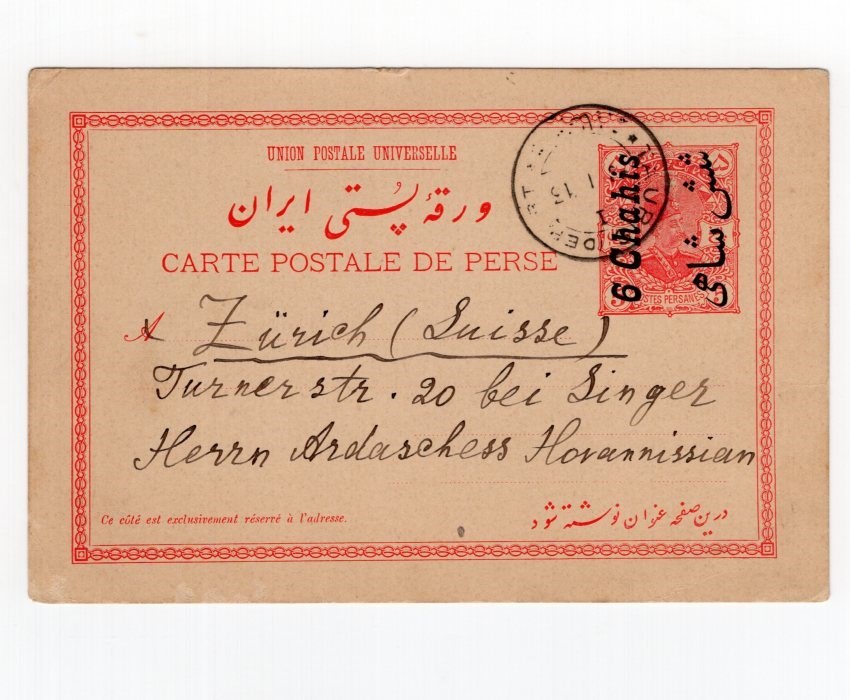 UNION POSTALE UNIVERSELLE
ورقهٔ پُستی ایران
CARTE POSTALE DE PERSE
6 Chahis
شش شاهی
5
POSTES PERSANES
5
A Zürich (Suisse)
Turnerstr. 20 bei Singer
Herrn Ardaschess Hovannissian
Ce côté est exclusivement réservé à l'adresse.
درین صفحه عنوان نوشته شود